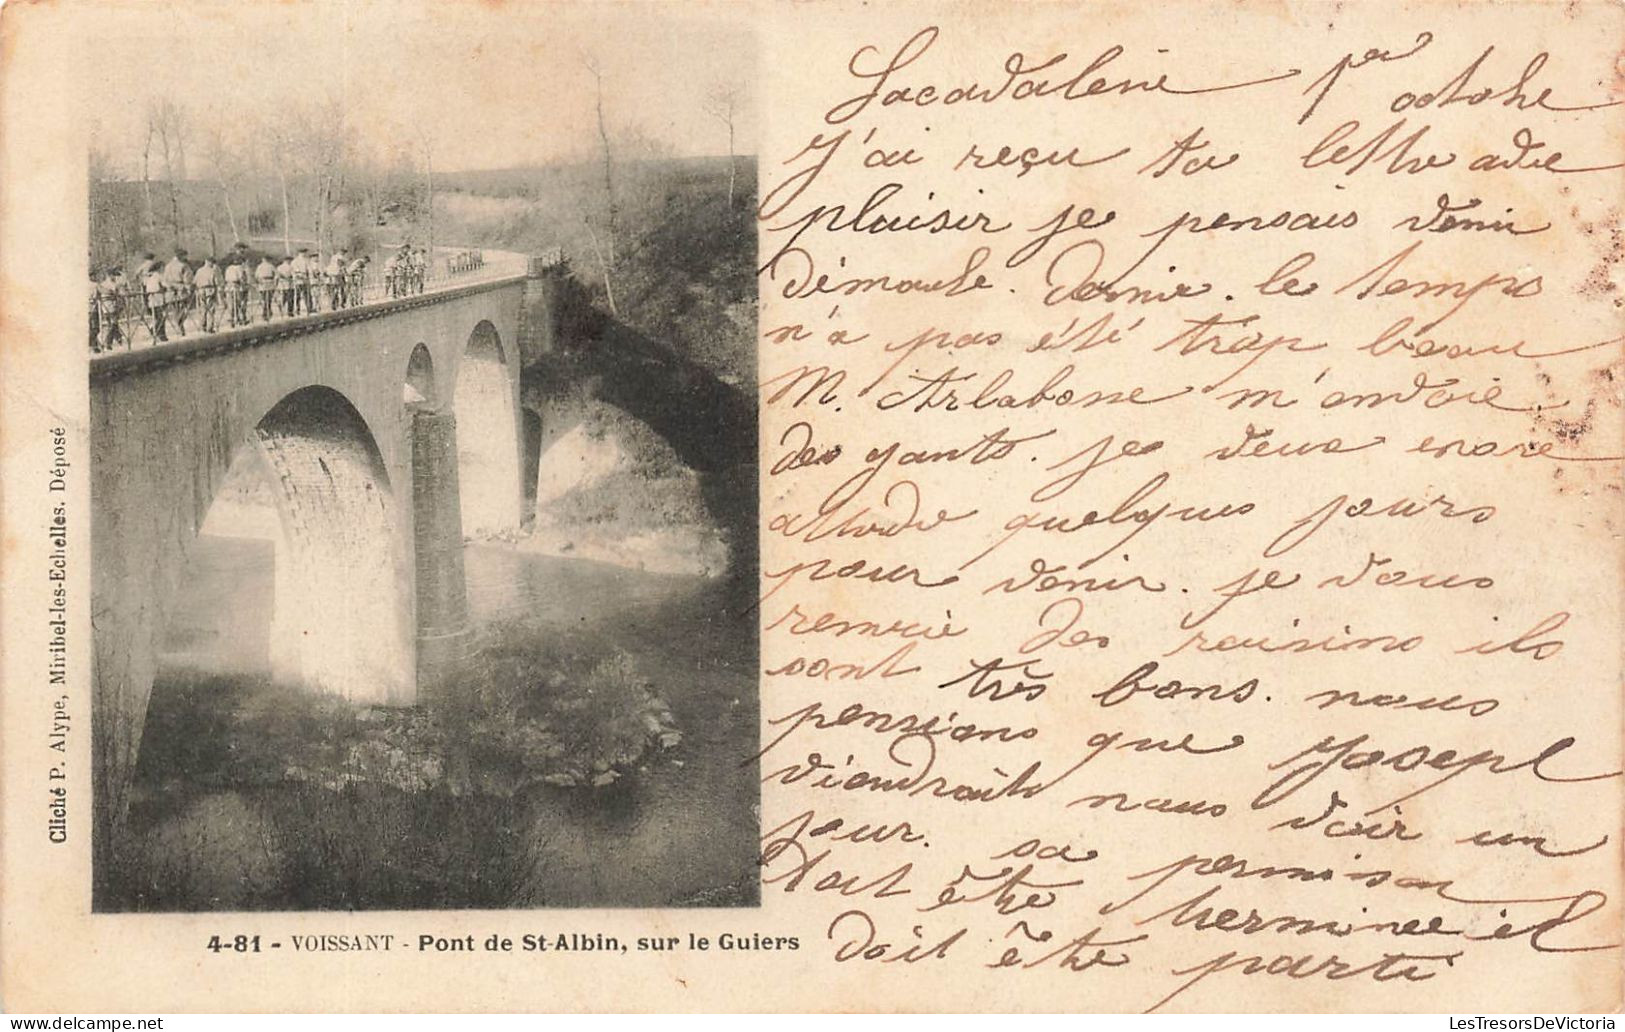 Cliché P. Alype, Miribel-les-Echelles. Déposé
4-81 - VOISSANT - Pont de St-Albin, sur le Guiers
1er octobre
J'ai reçu ta lettre avec
plaisir je pensais venir
dimanche. dernier. le temps
n'a pas été trop beau
M. Arlabosse m'envoie
des gants. je veux encore
attendre quelques jours
pour venir. je vous
remercie des raisins ils
sont très bons. nous
pensions que Joseph
viendrait nous voir un
jour. sa permission
doit être terminee il
doit être parti
LesTresorsDeVictoria